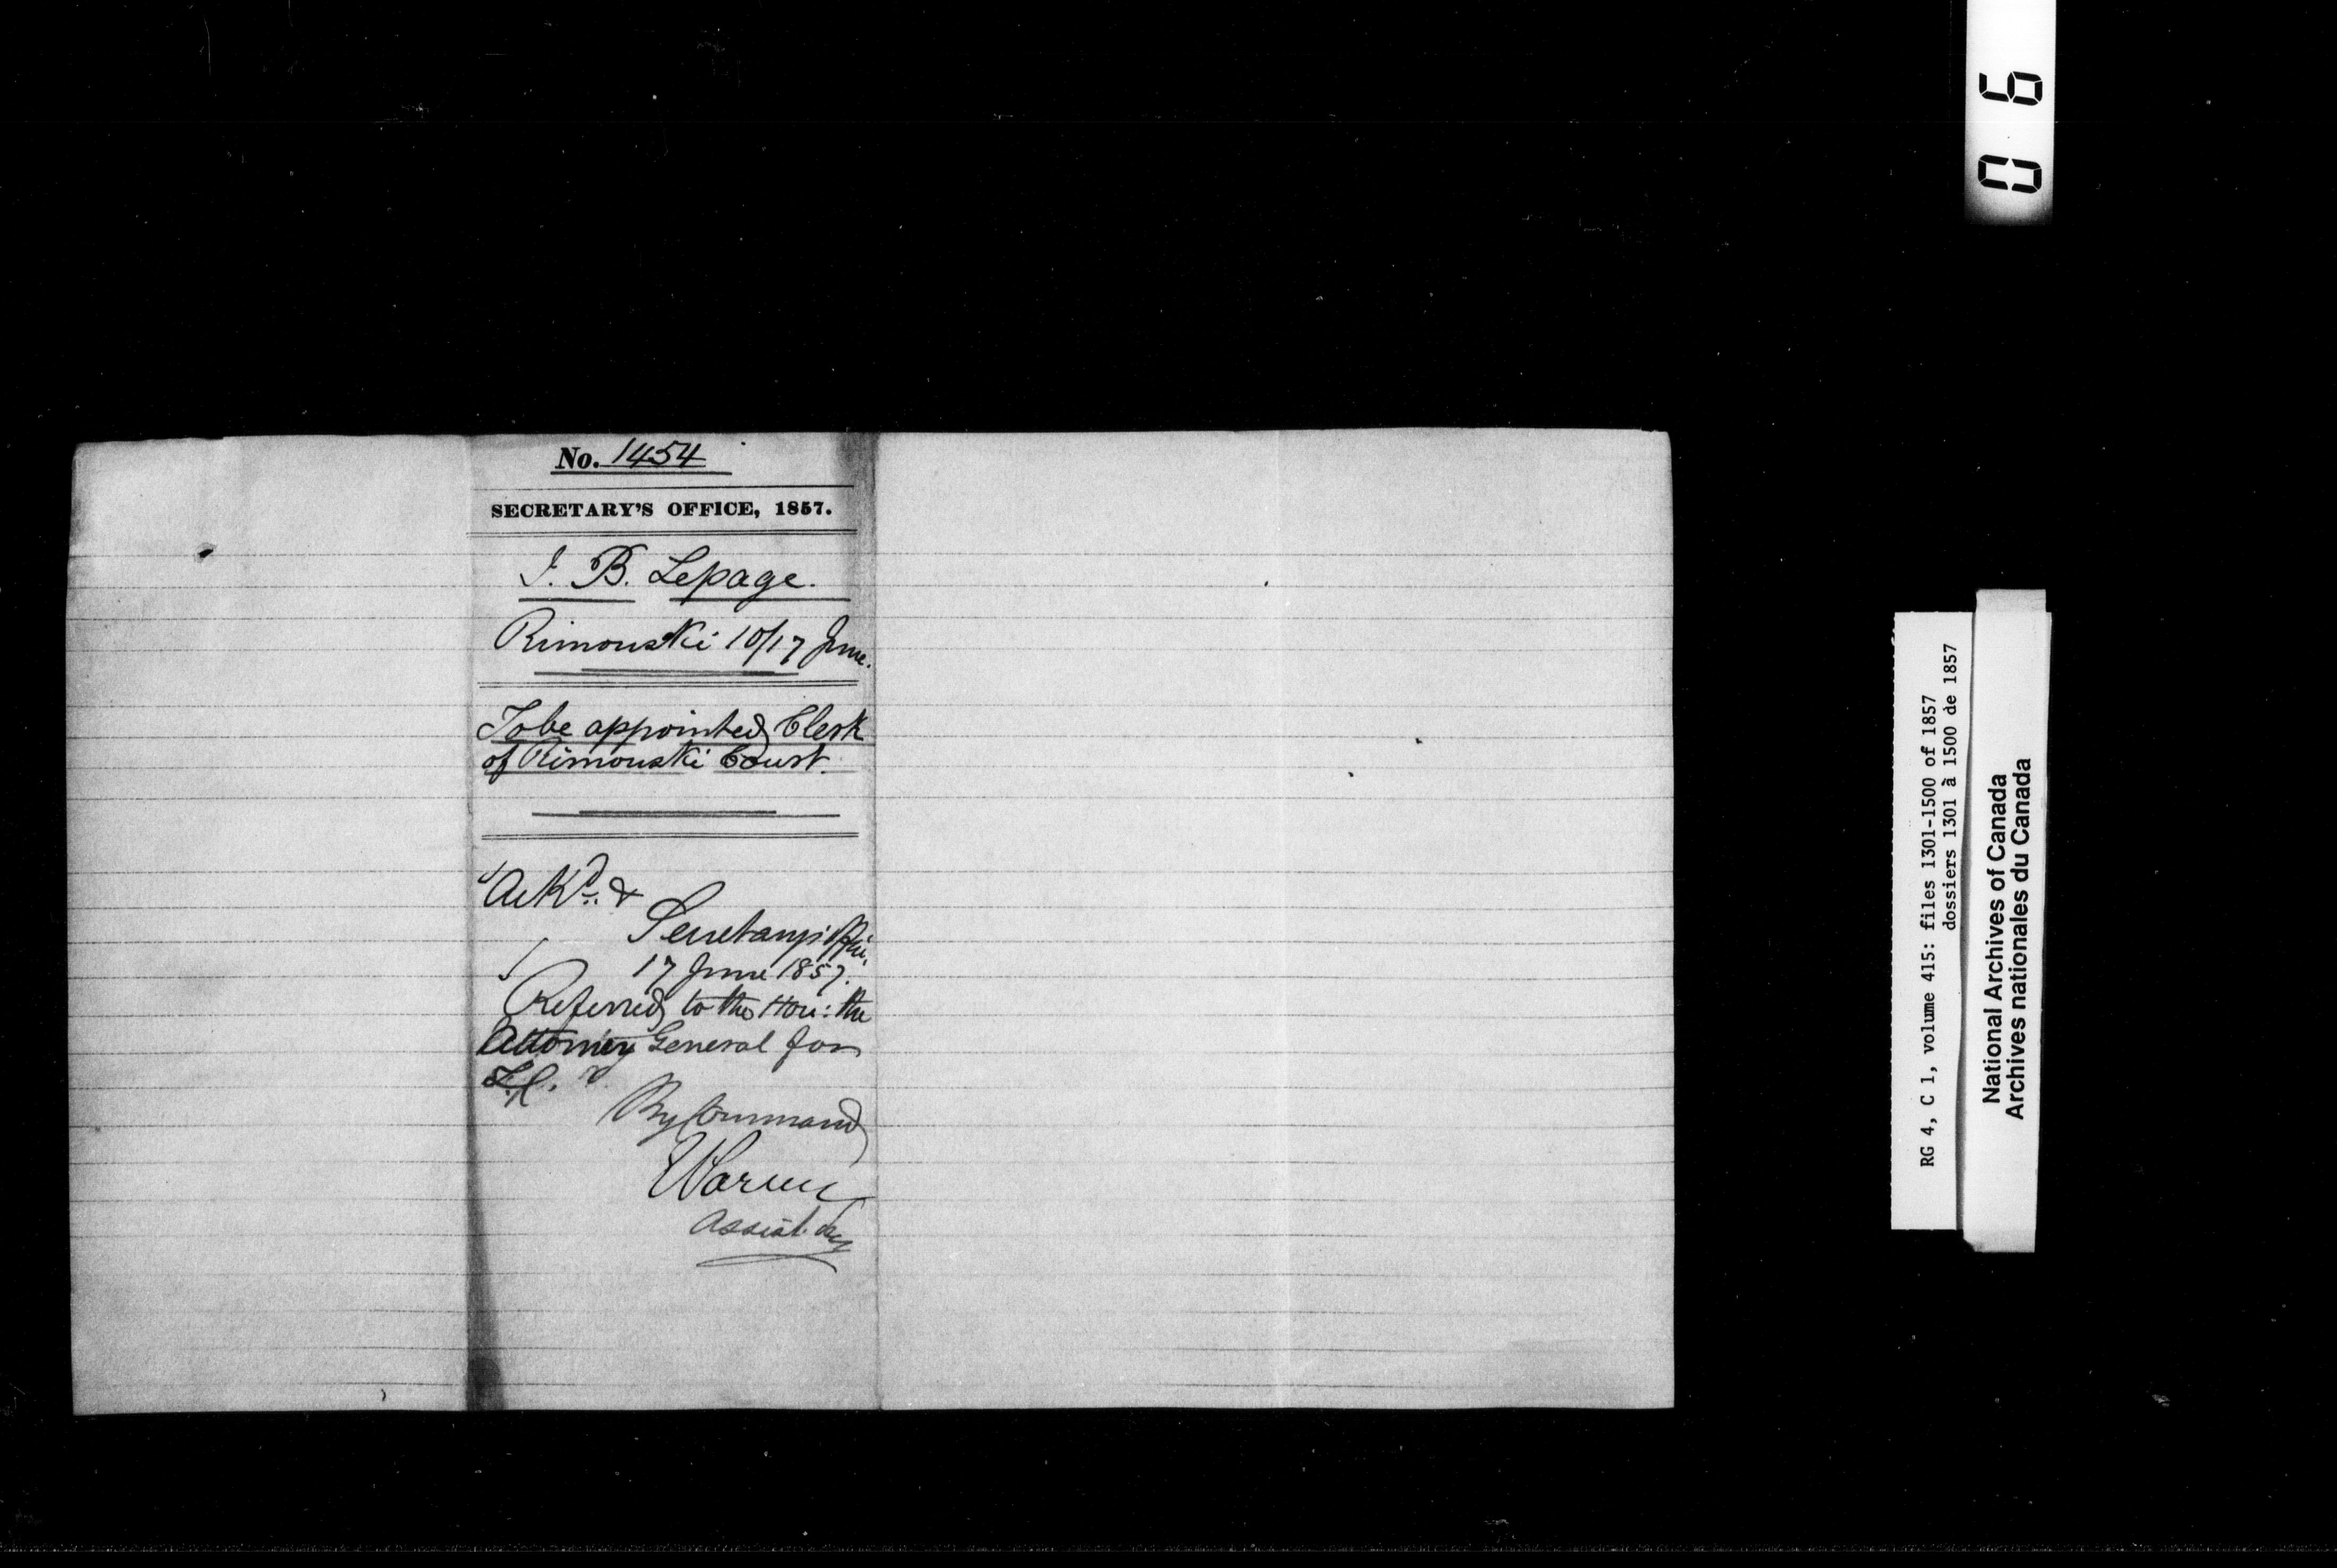 No. 1454
SECRETARY'S OFFICE, 1857.
J. B. Lepage.
Rimouski 10/17 June.
To be appointed Clerk
of Rimouski Court.
Ackd. &
Secretary's Office,
17 June 1857.
Referred to the Hon: the
Attorney General for
L.C.
By Command
Assist. Secy
06
RG 4, C 1, volume 415: files 1301-1500 of 1857
dossiers 1301 à 1500 de 1857
National Archives of Canada
Archives nationales du Canada